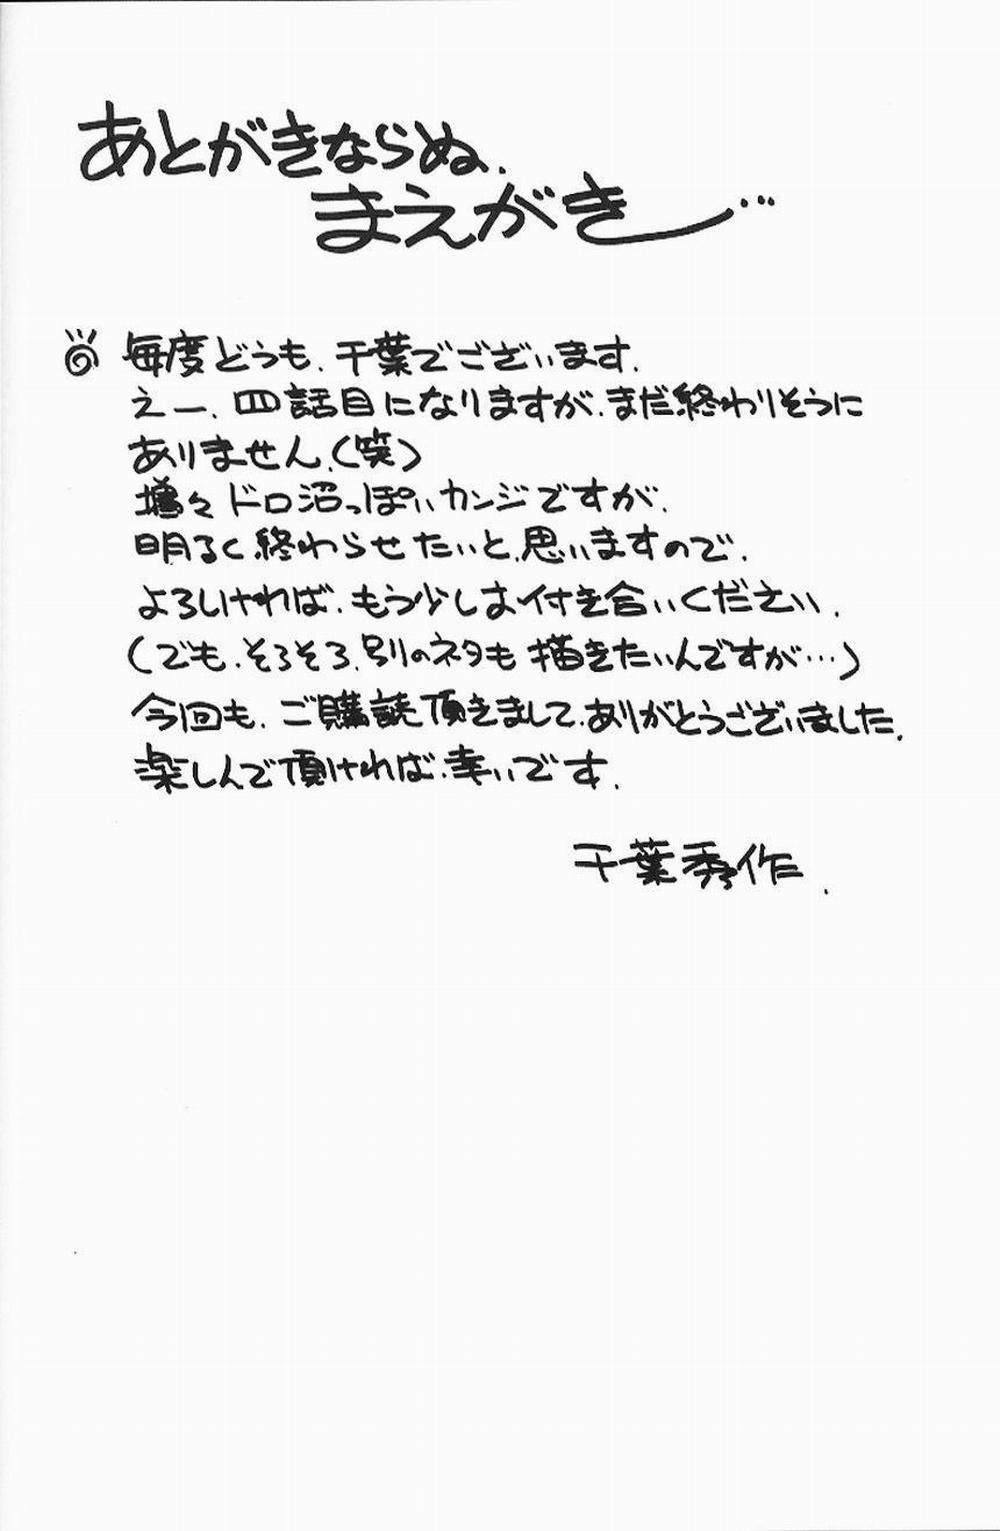 あとがきならぬ、
まえがき…
毎度どうも、千葉でございます。
えー、四話目になりますが、まだ終わりそうに
ありません。(笑)
増々ドロ沼っぽいカンジですが、
明るく終わらせたいと、思いますので、
よろしければ、もう少しお付き合いください。
(でも、そろそろ、別のネタも描きたいんですが…)
今回も、ご購読頂きまして、ありがとうございました。
楽しんで頂ければ、幸いです。
千葉秀作.